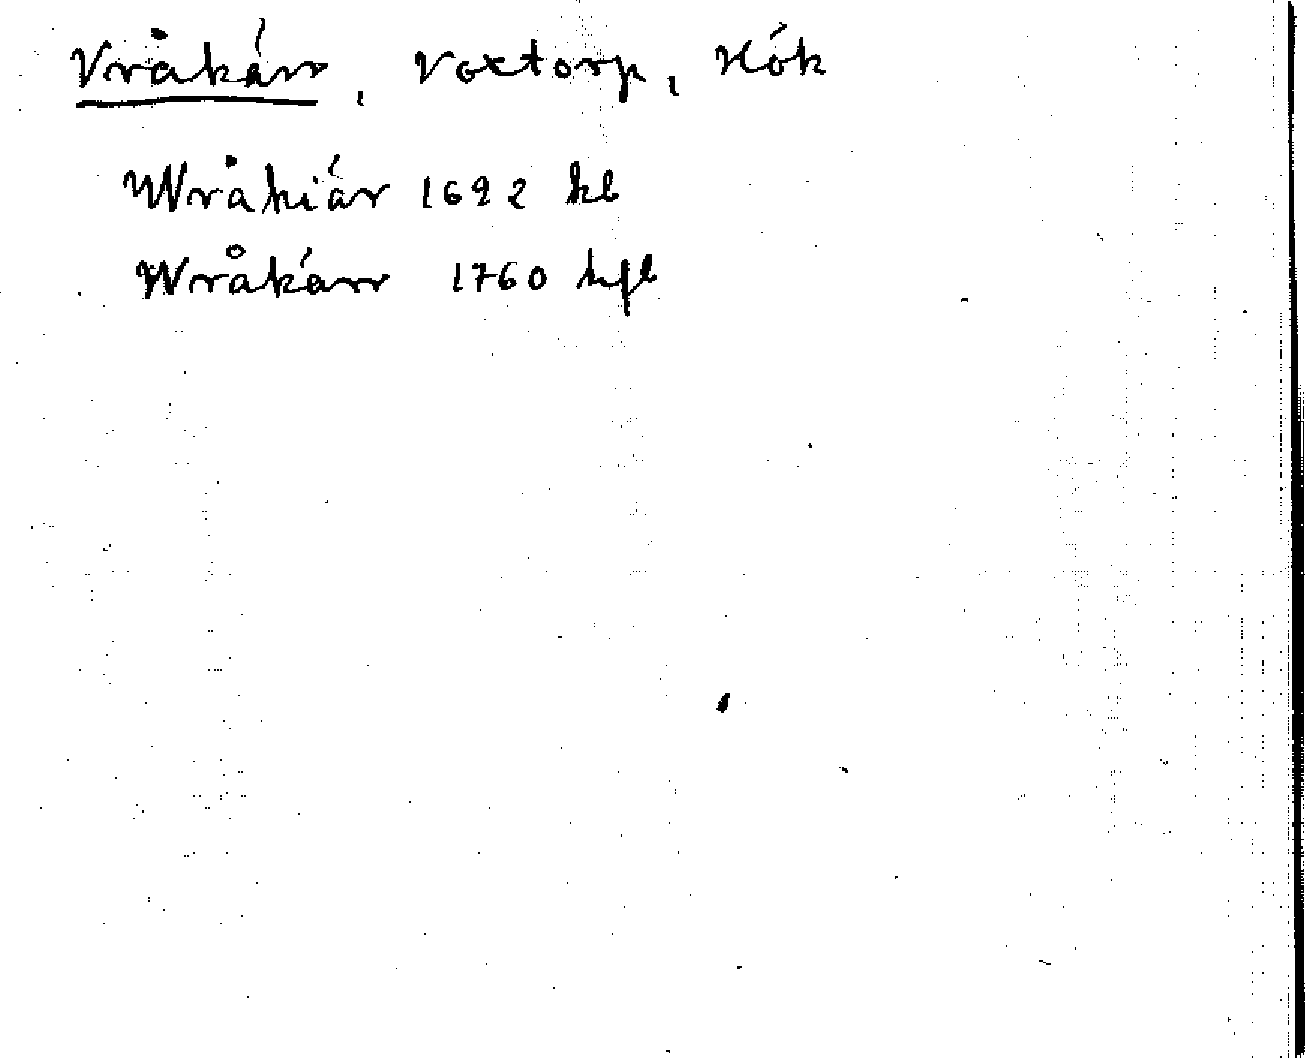 Vråkärr, Voxtorp, Hök
Wråkiär 1692 kb
Wråkärr 1760 hfl